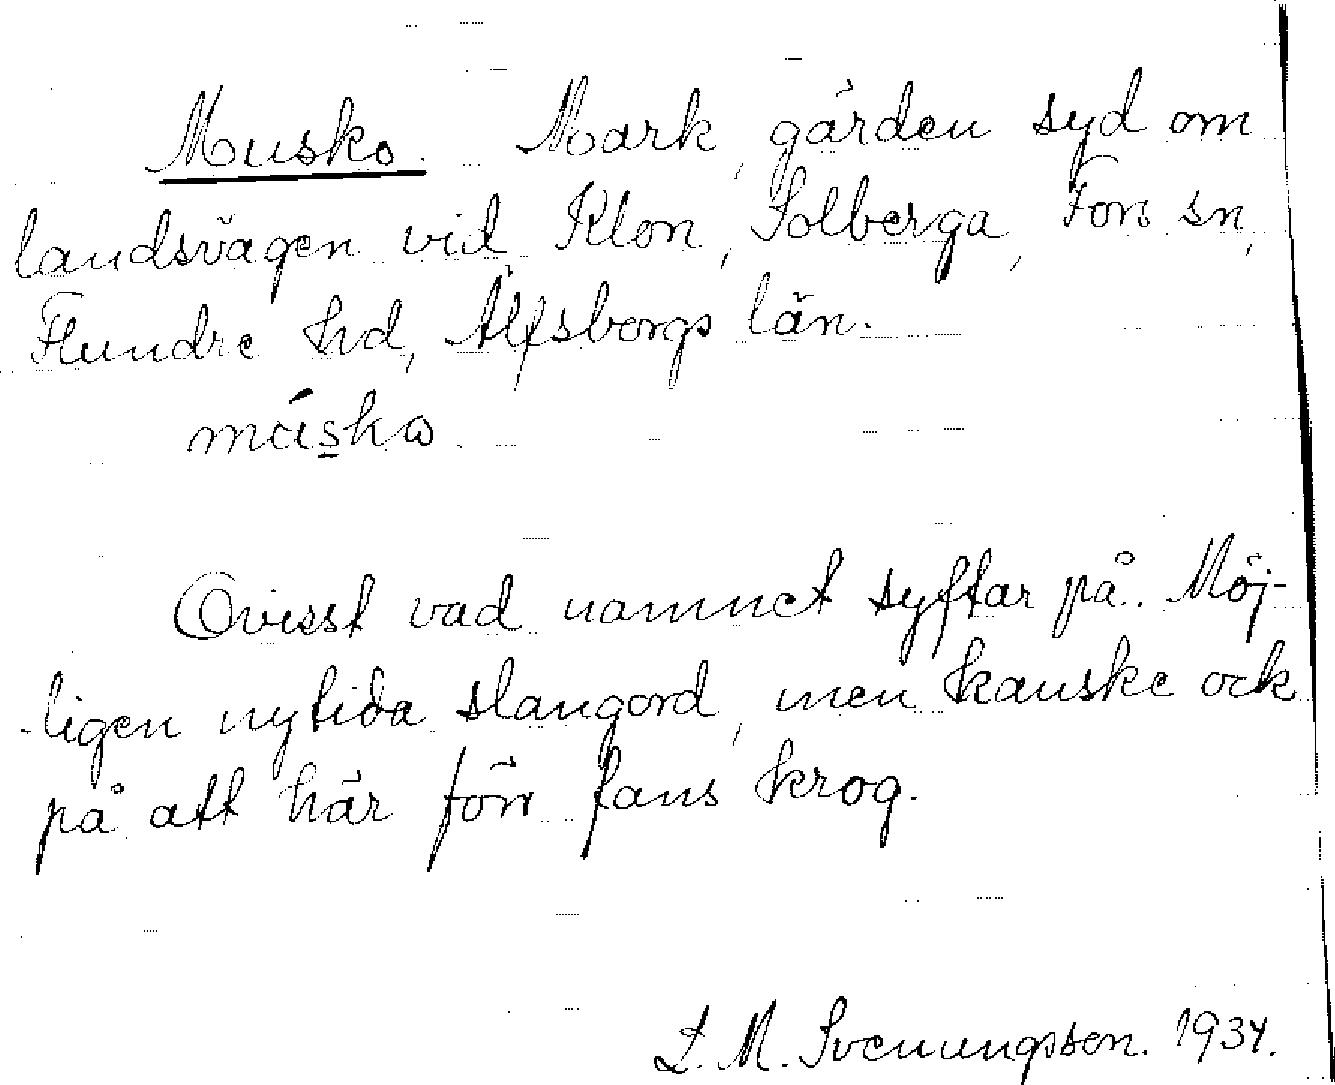 Musko. Mark, gärden syd om
landsvägen vid Klon, Solberga, Fors sn,
Flundre hd, Älfsborgs län.
måsko.
Ovisst vad namnet syftar på. Möj-
ligen nytida slangord, men kanske ock
på att här förr fans krog.
L. M. Svenungsson. 1934.